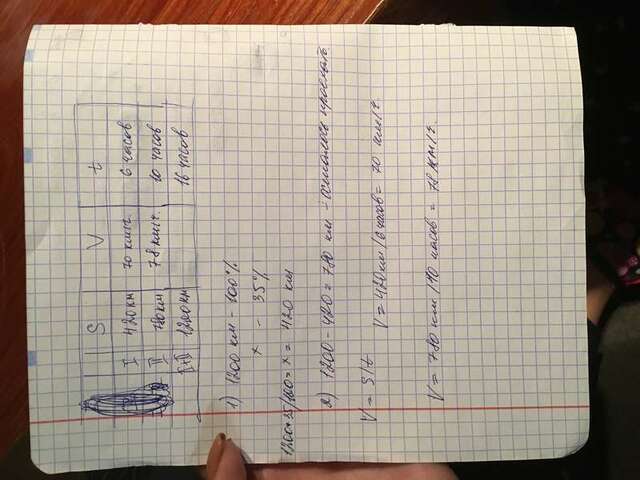 S V t
I 420 км 70 км/ч. 6 часов
II 780 км 78 км/ч. 10 часов
I+II 1200 км 16 часов
1) 1200 км - 100%
x - 35%
1200*35/100= x = 420 км
2) 1200 - 420 = 780 км - осталось проехать
V = S/t
V = 420 км/6 часов = 70 км/ч.
V = 780 км/10 часов = 78 км/ч.